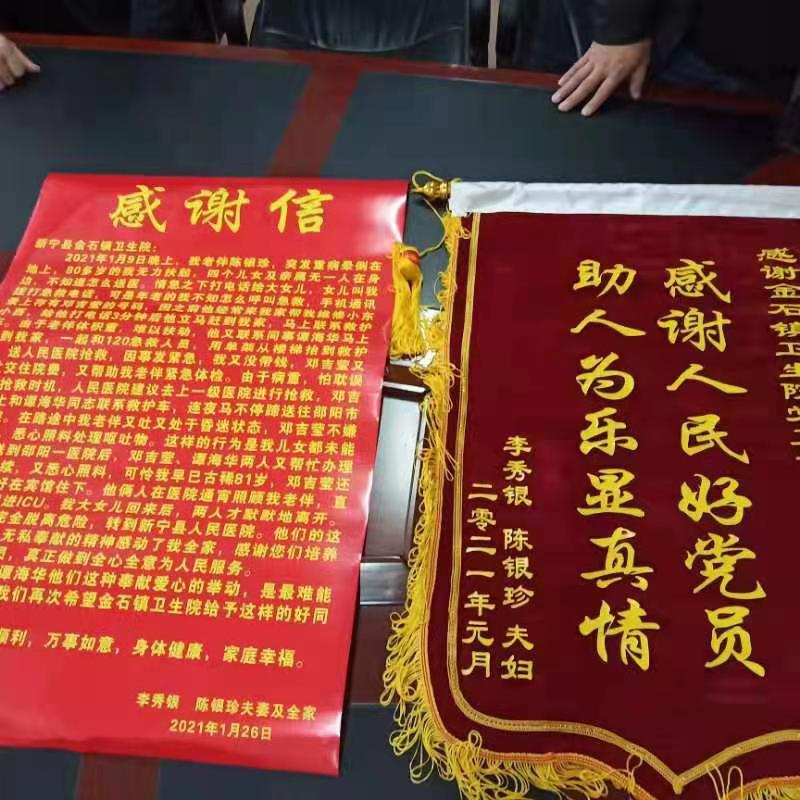 感谢信
新宁县金石镇卫生院：
2021年1月9日晚上，我老伴陈银珍，突发重病晕倒在
地上，80多岁的我无力扶起，四个儿女及亲属无一人在身
边，不知道怎么送医，情急之下打电话给大女儿，女儿叫我
打急救电话，可是年老的我不知怎么呼叫急救，手机通讯
除他打电话3分钟
立马赶到我家，马上联系救护
由于老伴体积重，难以扶动，他又联系同事谭海华马上
到我家，一起和120急救人员，用单架从楼梯抬到救护
送人民医院抢救，因事发紧急，我又没带钱，邓吉莹又
交住院费，又帮助我老伴紧急体检。由于病重，怕耽误
抢救时机，人民医院建议去上一级医院进行抢救，邓吉
上和谭海华同志联系救护车，连夜马不停蹄送往邵阳市
，在路途中我老伴又吐又处于昏迷状态，邓吉莹不嫌
，恶心照料处理呕吐物。这样的行为是我儿女都未能
到邵阳一医院后，邓吉莹、谭海华两人又帮忙办理
续，又悉心照料，可怜我早已古稀81岁，邓吉莹还
好在宾馆住下。他俩人在医院通宵照顾我老伴，直
进ICU。我大女儿回来后，两人才默默地离开。
完全脱离危险，转到新宁县人民医院。他们的这
无私奉献的精神感动了我全家，感谢您们培养
员，真正做到全心全意为人民服务。
谭海华他们这种奉献爱心的举动，是最难能
我们再次希望金石镇卫生院给予这样的好同
顺利，万事如意，身体健康，家庭幸福。
李秀银 陈银珍夫妻及全家
2021年1月26日
感谢金石镇卫生院
感谢人民好党员
助人为乐显真情
李秀银 陈银珍 夫妇
二零二一年元月